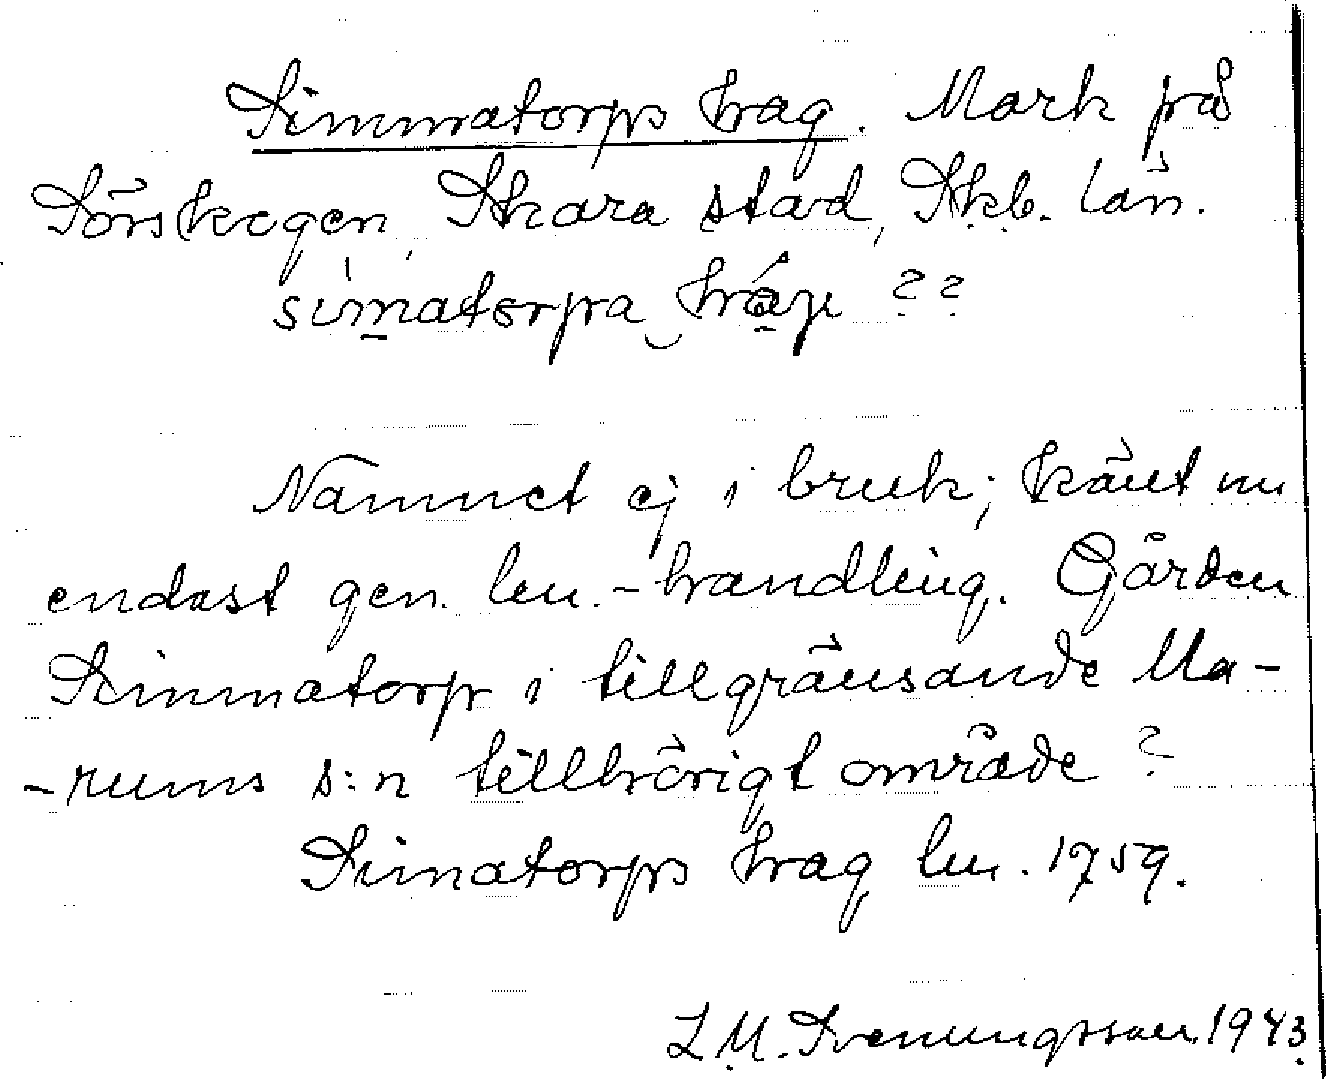 Simmatorps hag. Mark på
Sörskogen, Skara stad, Skb. län.
simatorpa hág ??
Namnet ej i bruk; känt nu
endast gen. lm.-handling. Gården
Simmatorp i tillgränsande Ma-
-rums s:n tillhörigt område?
Simatorps hag lm. 1759.
L.M. Svenungsson 1943